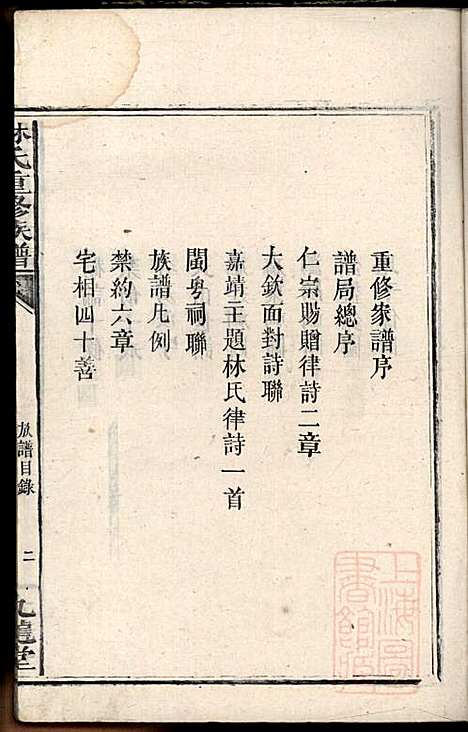 重修家譜序
譜局總序
仁宗賜贈律詩二章
大欽面對詩聯
嘉靖王題林氏律詩一首
閩粤祠聯
族譜凡例
禁約六章
宅相四十善
林氏重修族譜
族譜目錄
二
九龍堂
上海圖書館藏